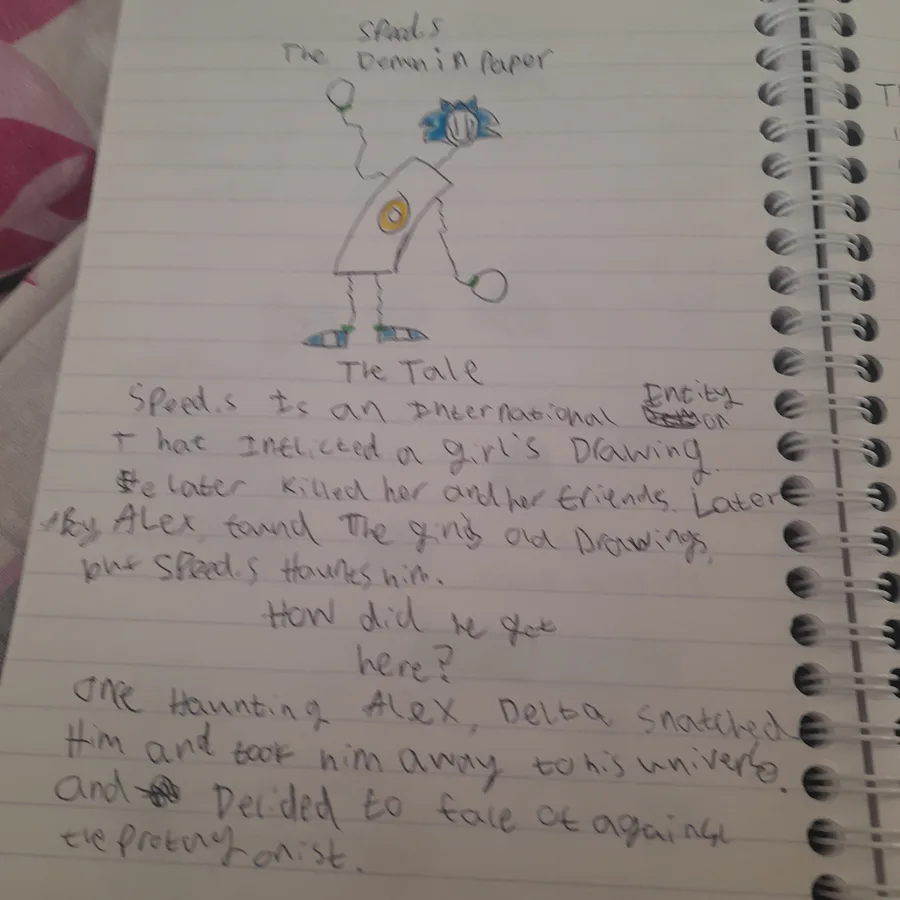 Speed.s
The Demon in Paper
The Tale
Speed.s Is an International Entity
on
That Inflicted a girl's Drawing.
He later killed her and her friends. Later
By Alex, found The girls old Drawings,
but Speed.s Haunts him.
How did he get
here?
One Haunting Alex, Delta snatched
Him and took him away to his universe.
and Decided to face of against
the protagonist.